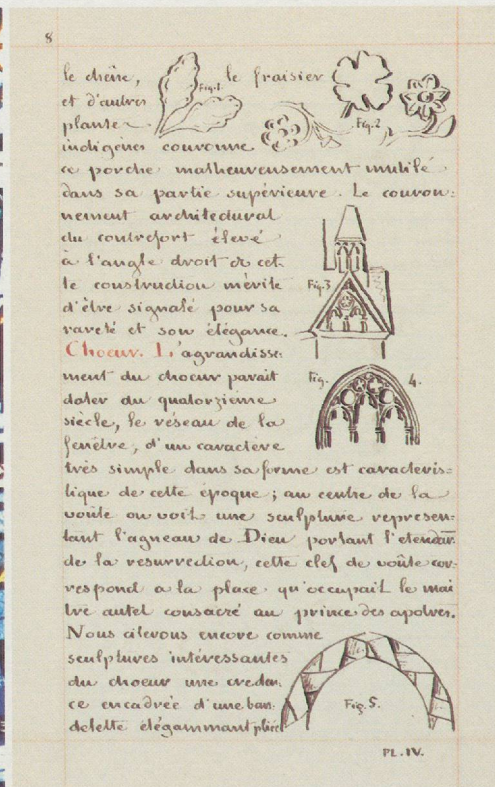 8
le chêne, Fig. 1. le fraisier
et d'autres
plantes Fig. 2
indigènes couronne
ce porche malheureusement mutilé
dans sa partie supérieure. Le couron-
nement architectural
du contrefort élevé
à l'angle droit de cet-
te construction mérite Fig. 3
d'être signalé pour sa
rareté et son élégance.
Choeur. L'agrandisse-
ment du choeur parait Fig. 4.
dater du quatorzieme
siècle, le réseau de la
fenêtre, d'un caractère
très simple dans sa forme est caracteris-
tique de cette époque; au centre de la
voûte on voit une sculpture represen-
tant l'agneau de Dieu portant l'etendar
de la resurrection, cette clef de voûte cor-
respond a la place qu'occupait le mai
tre autel consacré au prince des apotres.
Nous citerons encore comme
sculptures intéressantes
du choeur une creden-
ce encadrée d'une ban- Fig. 5.
delette élégammant pliée
PL. IV.